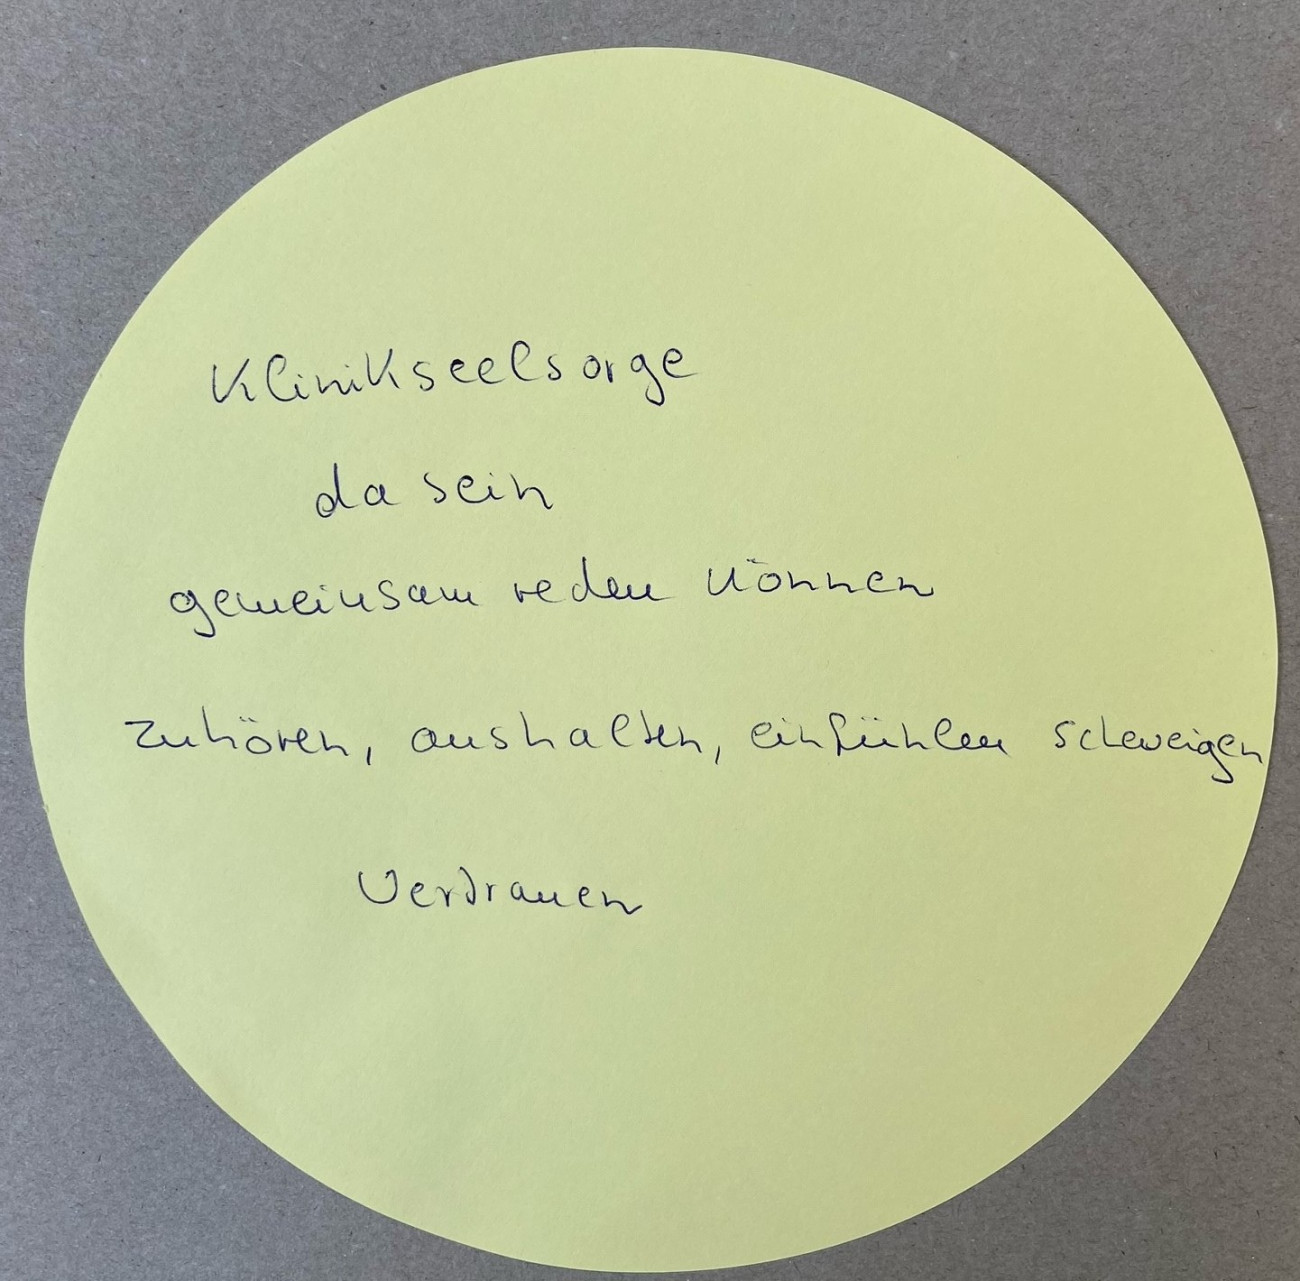 Klinikseelsorge
da sein
gemeinsam reden können
zuhören, aushalten, einfühlen schweigen
Vertrauen